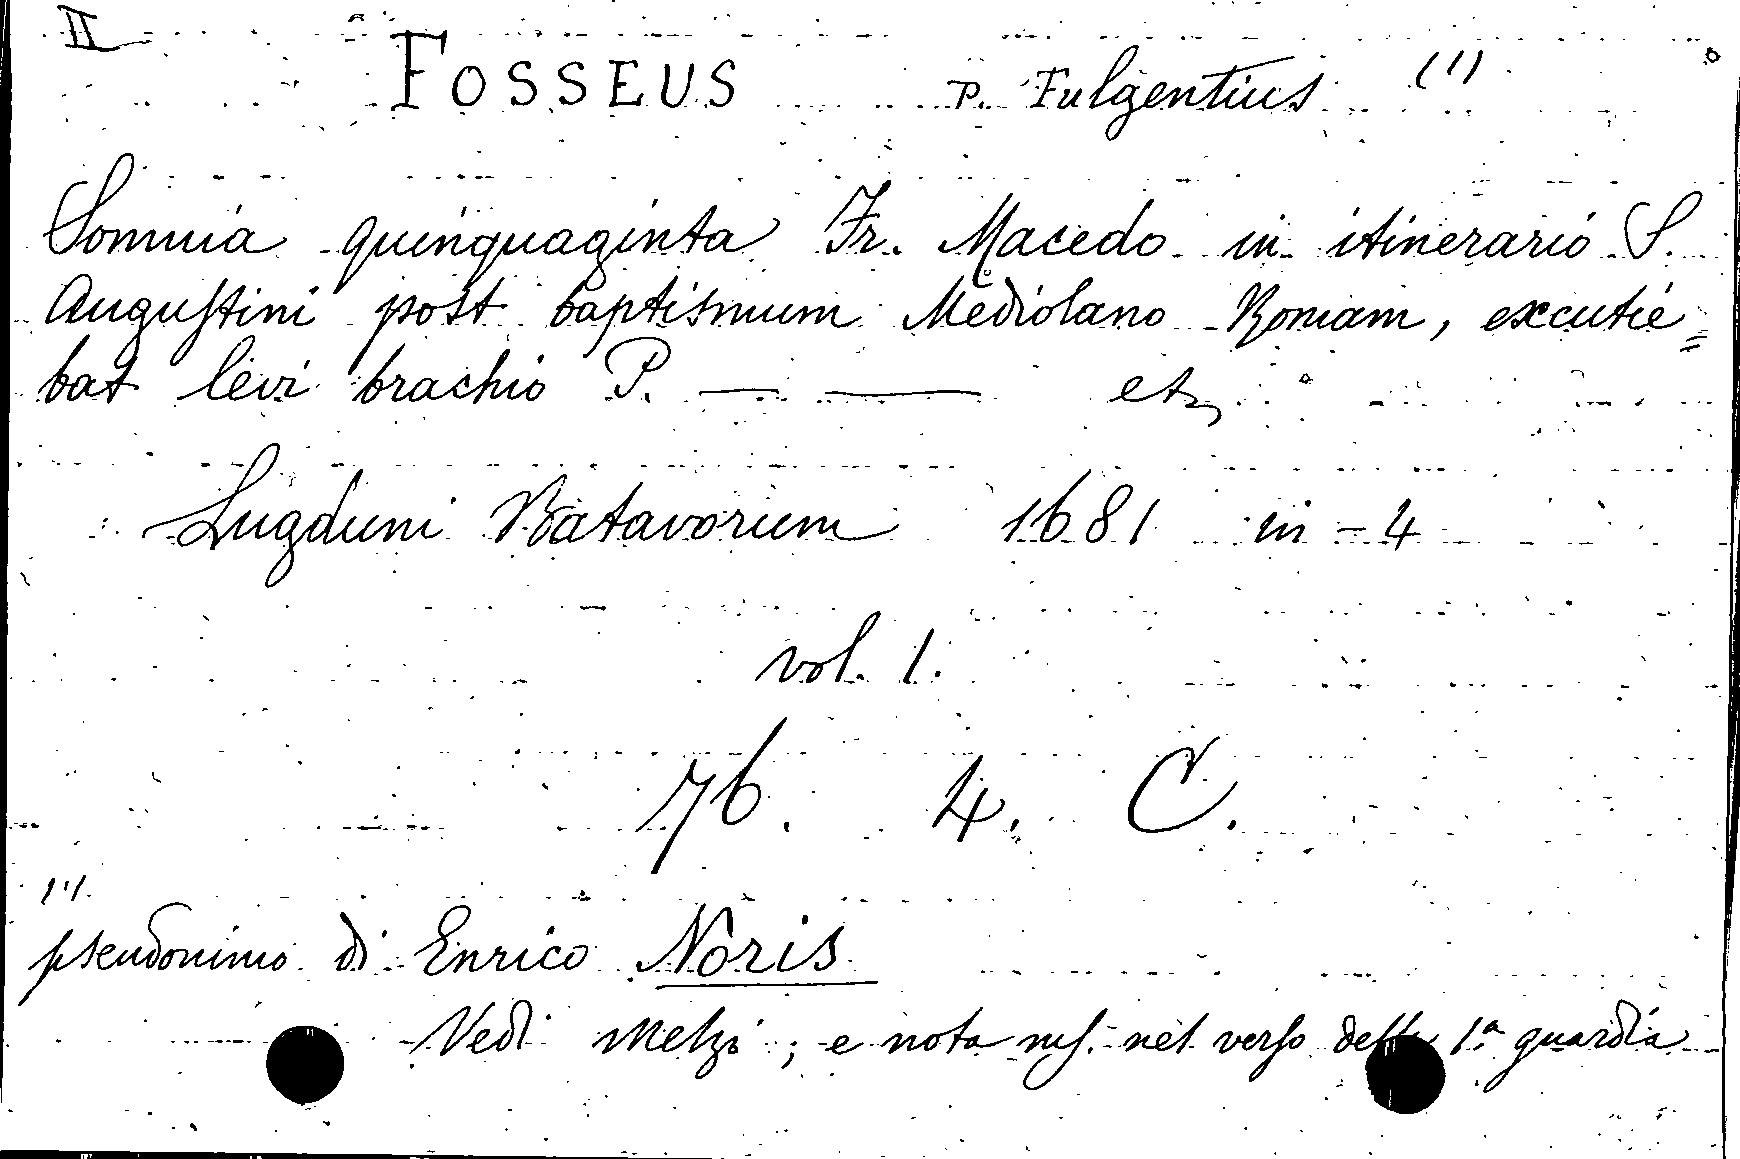 II
FOSSEUS P. Fulgentius (1)
Somnia quinquaginta Fr. Macedo in itinerario S.
Augustini post baptismum Mediolano Romam, excutie=
bat levi brachio P. — — etc
Lugduni Batavorum 1681 in-4
vol. 1.
76. 4. C.
(1)
pseudonimo di Enrico Noris
Vedi Melzi; e nota ms. nel verso della 1ª guardia